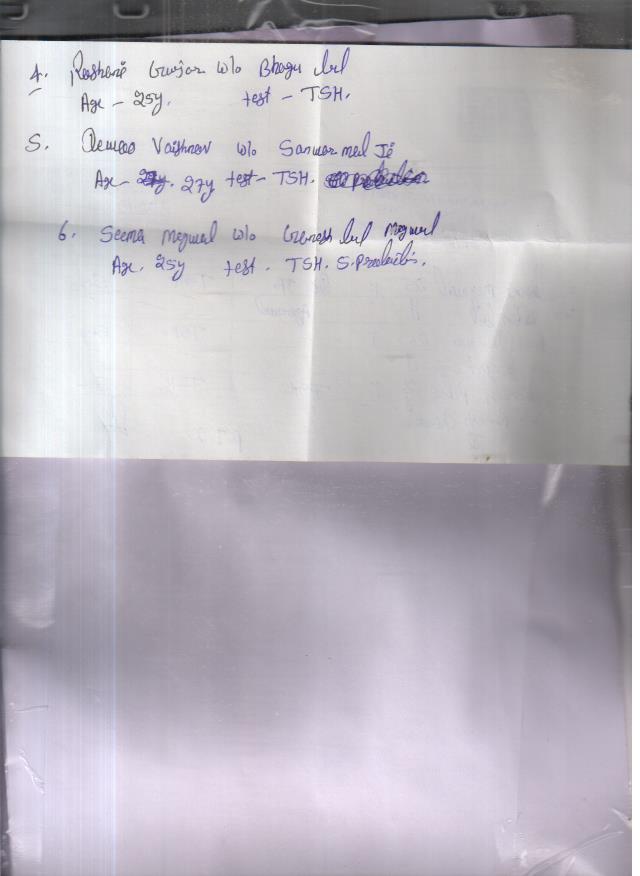 4. Roshani Gurjar w/o Bhagu lal
Age - 25y. test - TSH.
5. Vaishnav w/o Sanwar mal Ji
Age - 27y test - TSH.
6. Seema Megwal w/o Ganesh lal Megwal
Age. 25y test. TSH. S.Prolactin.